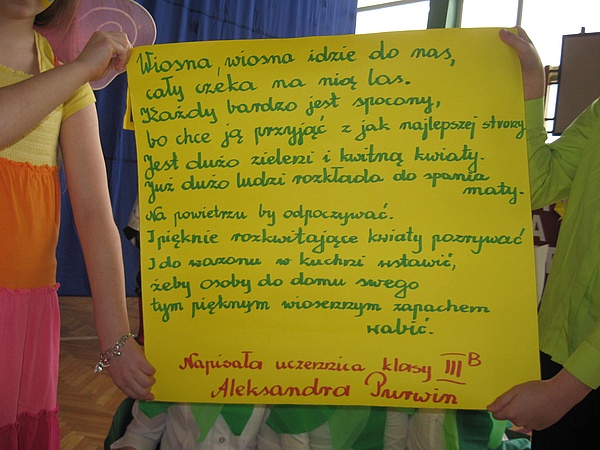 Wiosna, wiosna idzie do nas,
cały czeka na nią las.
Każdy bardzo jest spocony,
bo chce ją przyjąć z jak najlepszej strony
Jest dużo zieleni i kwitną kwiaty.
Już dużo ludzi rozkłada do spania
maty.
Na powietrzu by odpoczywać.
I pięknie rozkwitające kwiaty pozrywać
I do wazonu w kuchni wstawić,
żeby osoby do domu swego
tym pięknym wiosennym zapachem
wabić.
Napisała uczennica klasy III B
Aleksandra Purwin